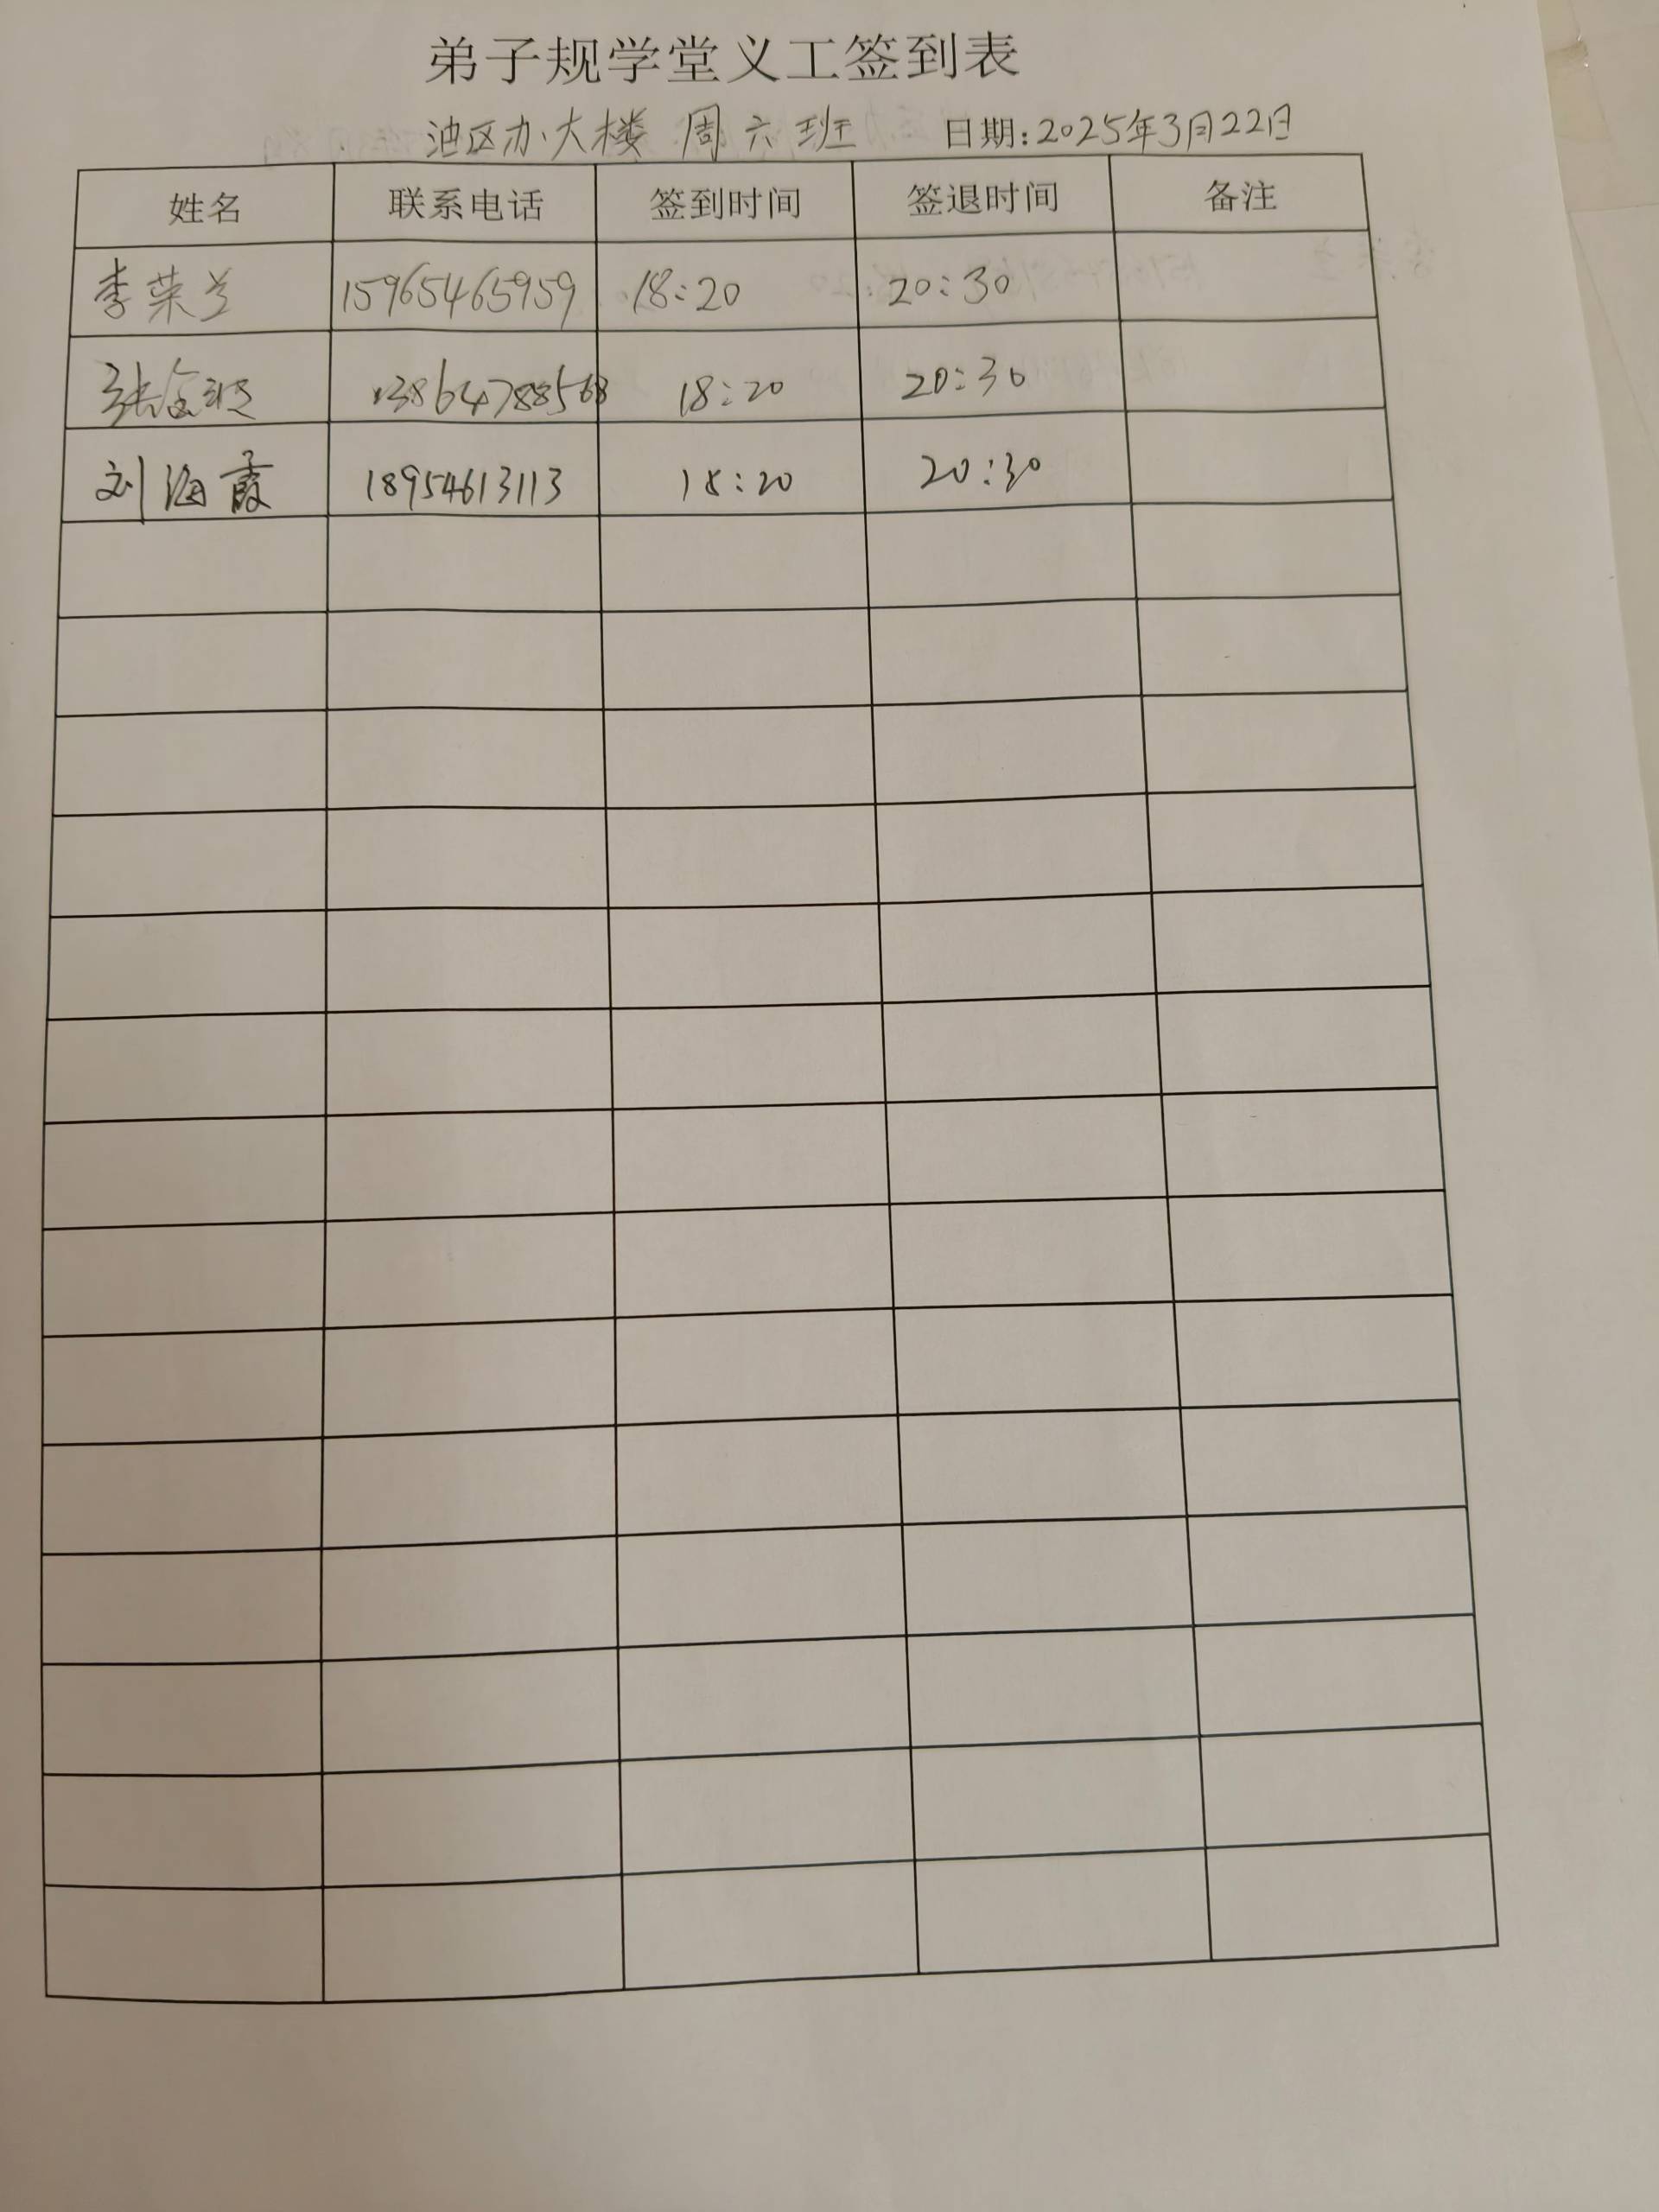 弟子规学堂义工签到表
油区办大楼 周六班 日期:2025年3月22日
姓名 联系电话 签到时间 签退时间 备注
李荣兰 15965465959 18:20 20:30
张 13864788568 18:20 20:30
刘海霞 18954613113 18:20 20:30